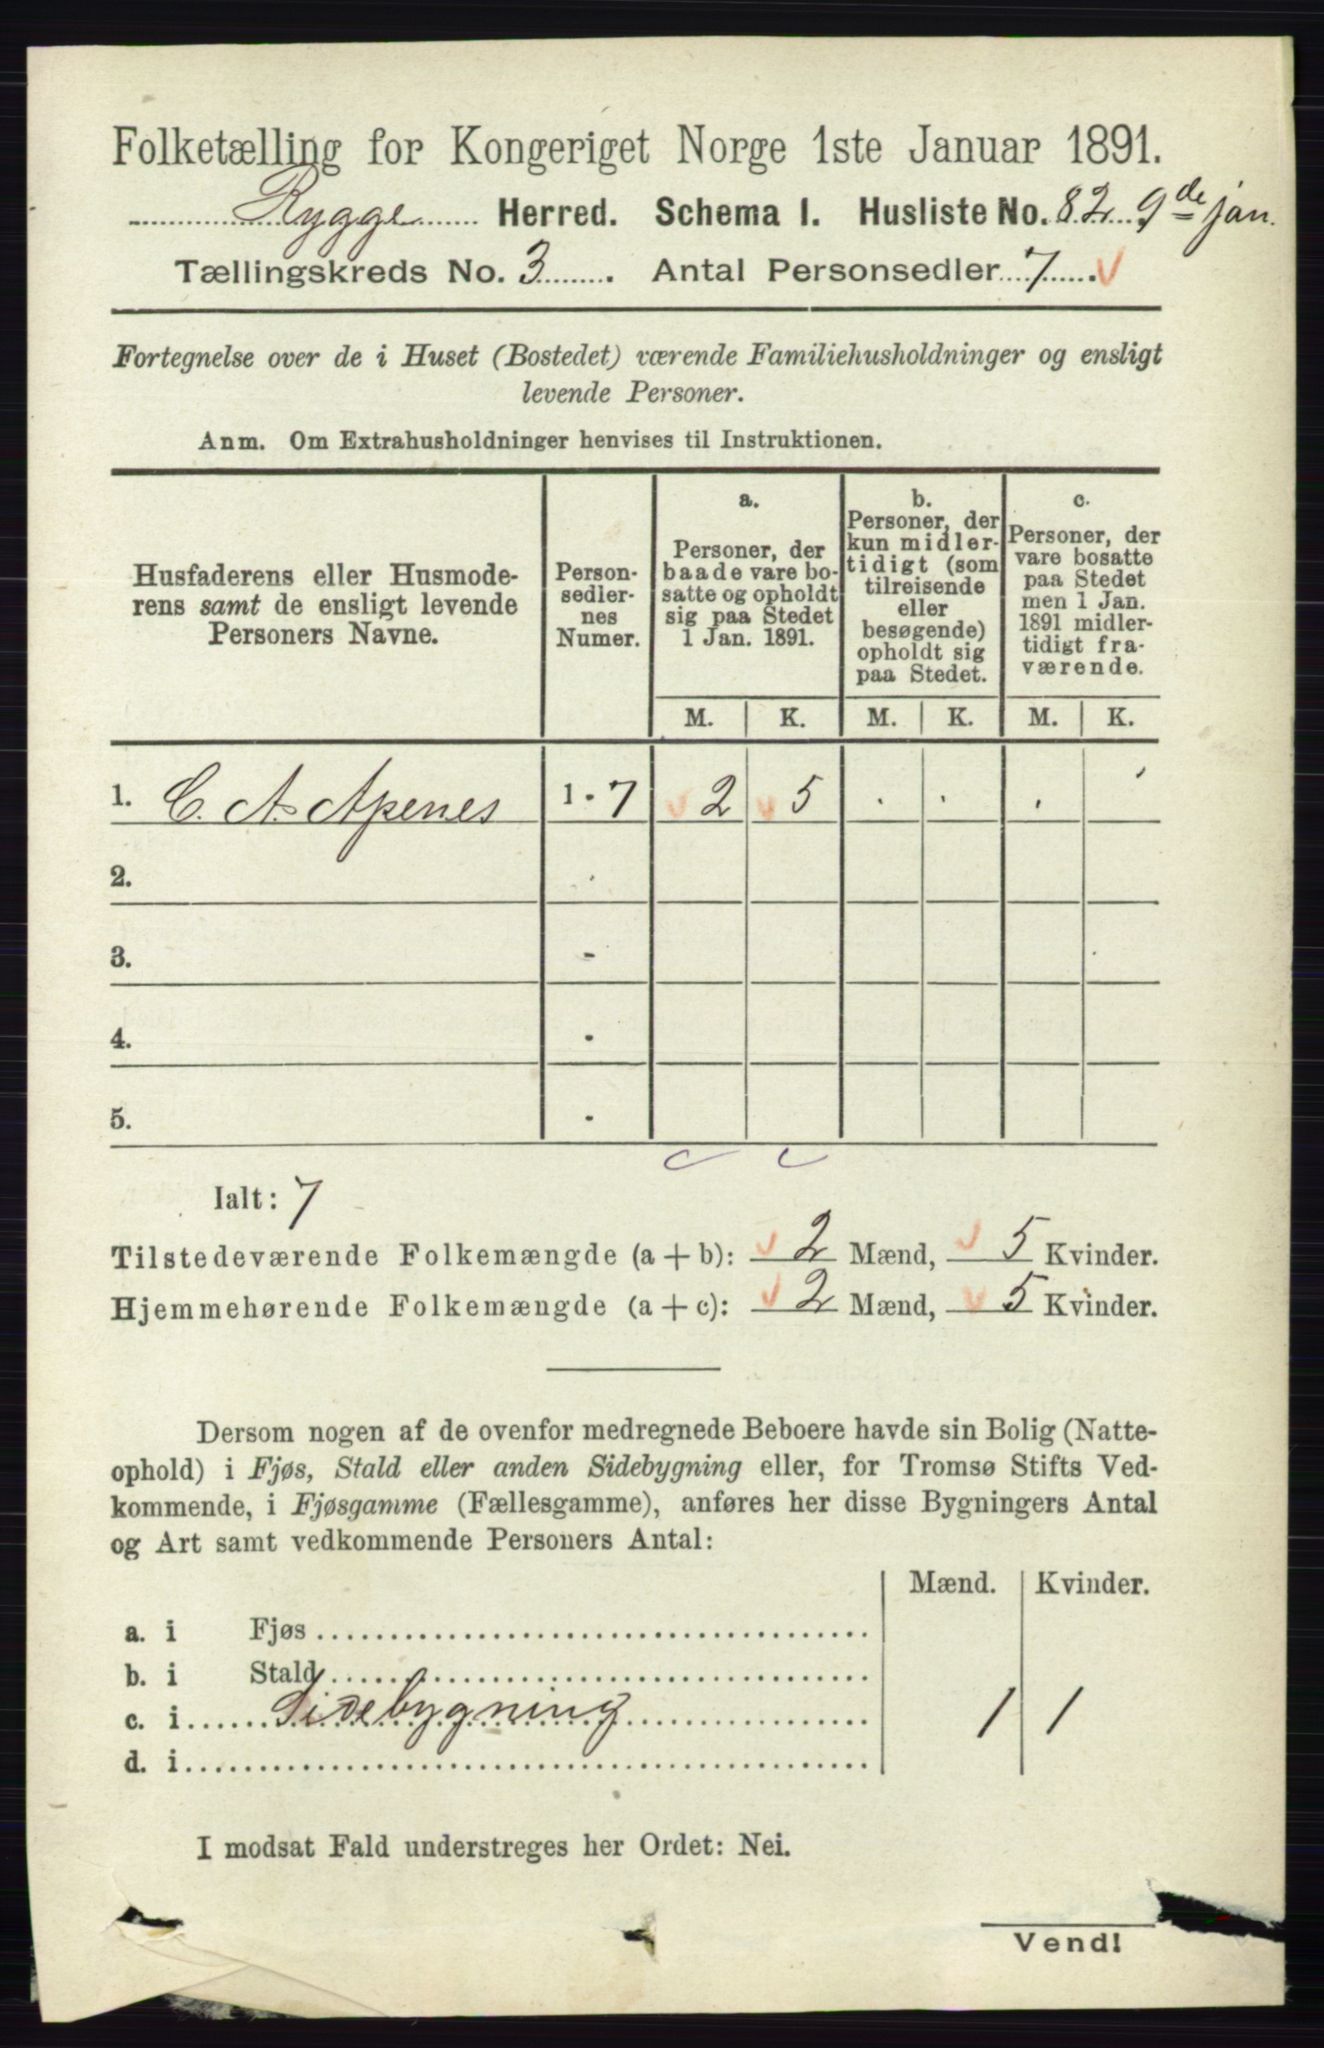 Folketælling for Kongeriget Norge 1ste Januar 1891.
Rygge Herred. Schema I. Husliste No. 82 9de jan.
Tællingskreds No. 3. Antal Personsedler 7
Fortegnelse over de i Huset (Bostedet) værende Familiehusholdninger og ensligt
levende Personer.
Anm. Om Extrahusholdninger henvises til Instruktionen.
Husfaderens eller Husmode-
rens samt de ensligt levende
Personers Navne.
Person-
sedler-
nes
Numer.
a.
Personer, der
baade vare bo-
satte og opholdt
sig paa Stedet
1 Jan. 1891.
b.
Personer, der
kun midler-
tidigt (som
tilreisende
eller
besøgende)
opholdt sig
paa Stedet.
c.
Personer, der
vare bosatte
paa Stedet
men 1 Jan.
1891 midler-
tidigt fra-
værende.
M. K. M. K. M. K.
1. C. A. Apenes 1 - 7 2 5
2.
3. -
4. -
5. -
Ialt: 7
Tilstedeværende Folkemængde (a + b): 2 Mænd, 5 Kvinder.
Hjemmehørende Folkemængde (a + c): 2 Mænd, 5 Kvinder.
Dersom nogen af de ovenfor medregnede Beboere havde sin Bolig (Natte-
ophold) i Fjøs, Stald eller anden Sidebygning eller, for Tromsø Stifts Ved-
kommende, i Fjøsgamme (Fællesgamme), anføres her disse Bygningers Antal
og Art samt vedkommende Personers Antal:
Mænd. Kvinder.
a. i Fjøs
b. i Stald
c. i Sidebygning 1 1
d. i
I modsat Fald understreges her Ordet: Nei.
Vend!